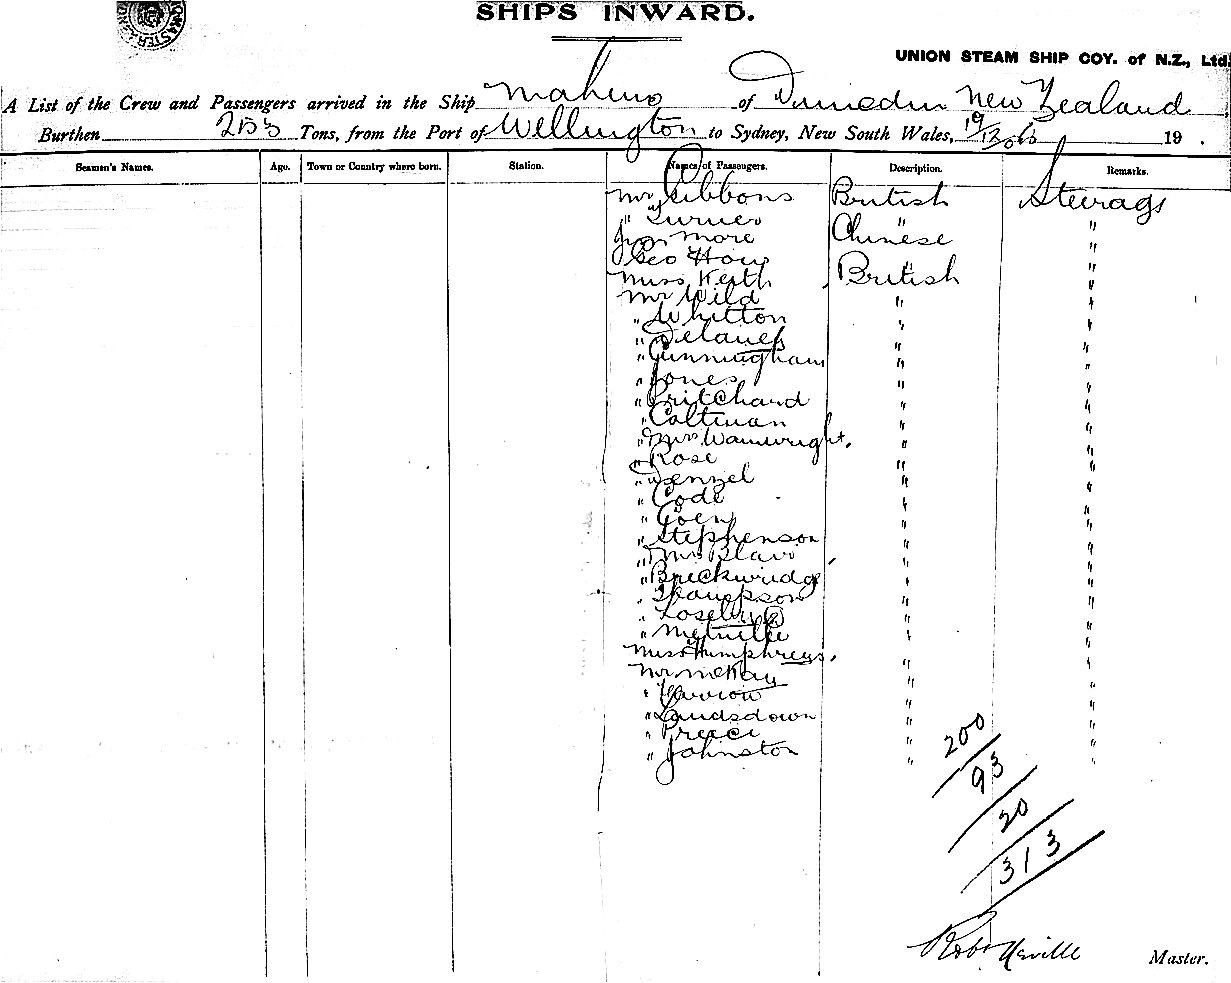 SHIPS INWARD.
UNION STEAM SHIP COY. of N.Z., Ltd.
A List of the Crew and Passengers arrived in the Ship Maheno of Dunedin New Zealand
Burthen Tons, from the Port of Wellington to Sydney, New South Wales, 19/12/06 19 .
Seamen's Names. Age. Town or Country where born. Station. Names of Passengers. Description. Remarks.
Mr Gibbons British Steerage
" Turner " "
more Chinese "
Geo How " "
Miss Keith British "
Mr Wild " "
" Whitton " "
" Delaney " "
" Cunningham " "
" Jones " "
" Pritchard " "
" Coltman " "
" Mrs Wainwright. " "
" Rose " "
" " "
" Code " "
" " "
" Stephenson " "
" " "
" " "
" Thompson " "
" " "
" Melville " "
Miss Humphreys. " "
Mr McKay " "
" " "
" Landsdown " "
" " "
" Johnston " "
200
93
20
313
Robt Neville Master.